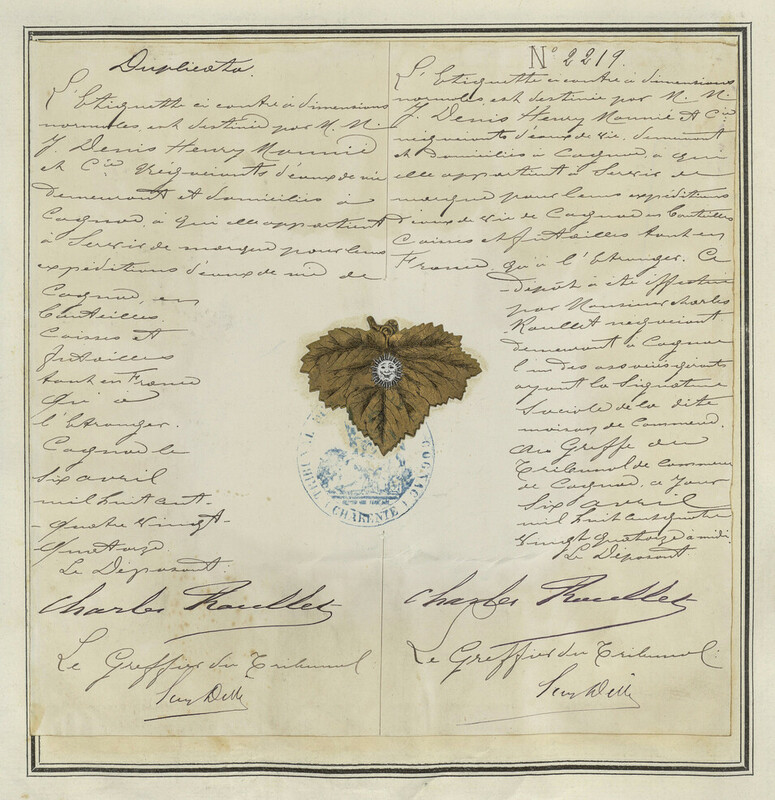 Duplicata.
L'Etiquette ci contre à dimensions
normales, est destinée par M. M.
J. Denis Henry Mounié
et Cie Négociants d'eaux de vie
demeurant et domiciliés à
Cognac, à qui elle appartient
à Servir de marque pour leurs
expéditions d'eaux de vie de
Cognac, en
bouteilles.
Caisses et
futailles
tant en France
qu'à
l'Etranger.
Cognac le
six avril
mil huit cent
quatre vingt
quatorze
Le Déposant.
Charles Roullet
Le Greffier du Tribunal
N° 2219.
L'Etiquette ci contre à dimensions
normales, est destinée par M. M.
J. Denis Henry Mounié et Cie
négociants d'eaux de vie, demeurant
et domiciliés à Cognac, à qui
elle appartient à Servir de
marque pour leurs expéditions
d'eaux de vie de Cognac en bouteilles
Caisses et futailles tant en
France qu'à l'Etranger. Ce
dépôt a été effectué
par Monsieur Charles
Roullet négociant
demeurant à Cognac
l'un des associés gérants
ayant la Signature
Sociale de la dite
maison de Commerce.
Au Greffe du
Tribunal de Commerce
de Cognac, ce jour
Six avril
mil huit cent quatre
vingt quatorze à midi.
Le Déposant.
Charles Roullet
Le Greffier du Tribunal.
COGNAC
(CHARENTE)